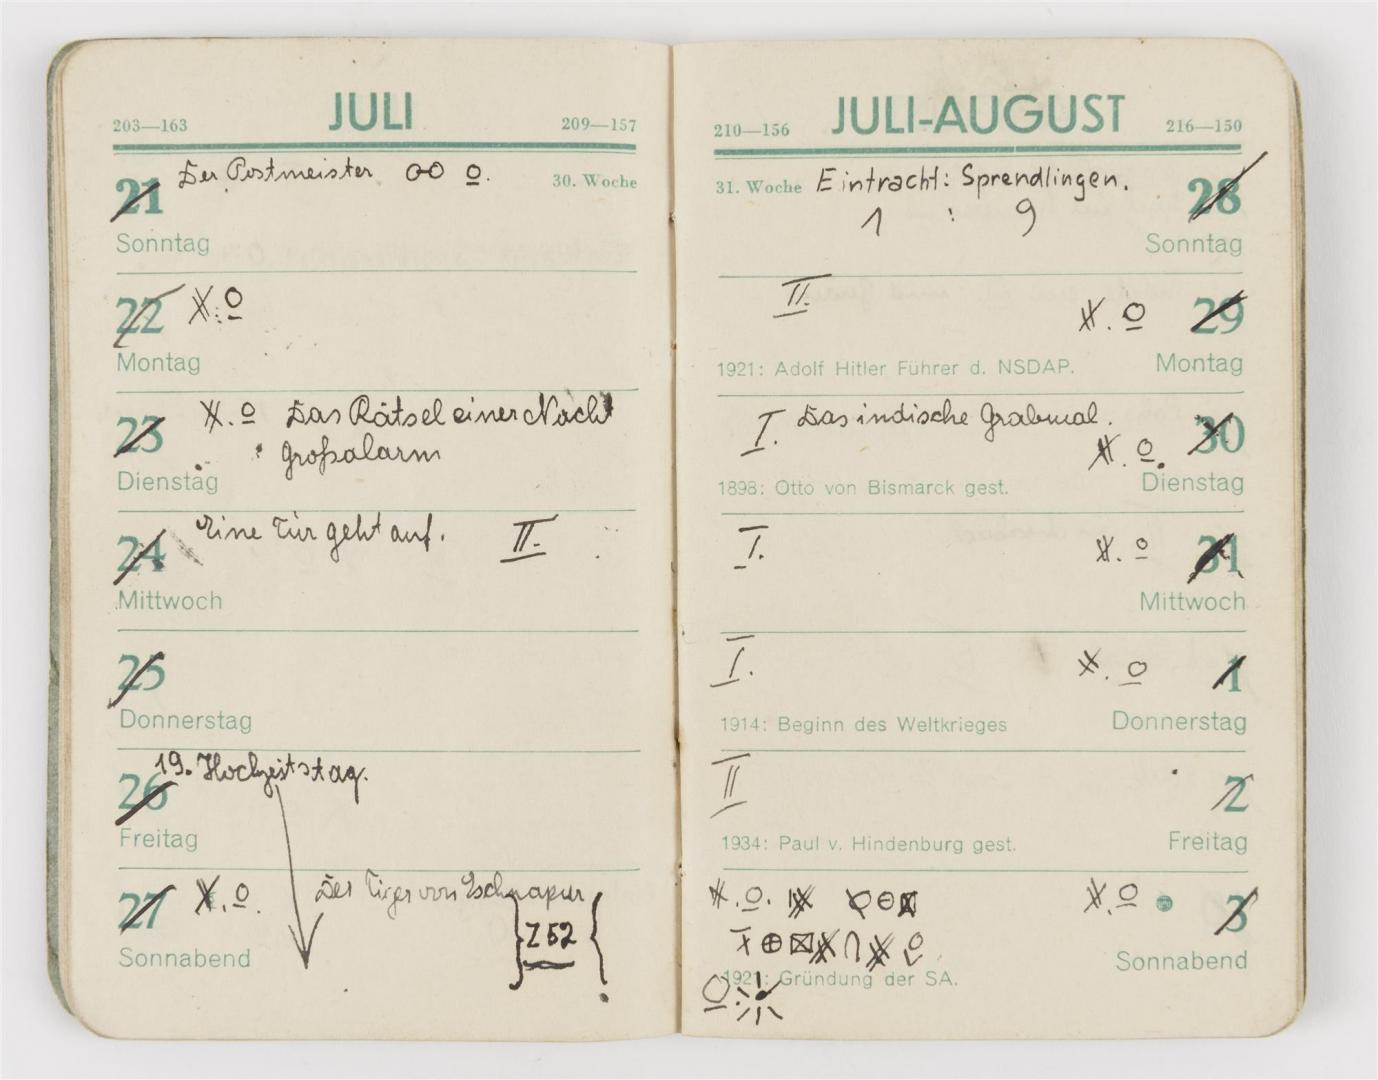 JULI
203—163
209—157
Der Postmeister
30. Woche
21
Sonntag
22
Montag
23
Das Rätsel einer Nacht
Großalarm
Dienstag
24
Eine Tür geht auf. II.
Mittwoch
25
Donnerstag
19. Hochzeitstag.
26
Freitag
27
Der Tiger von Eschnapur
Z 52
Sonnabend
JULI-AUGUST
210—156
216—150
31. Woche
Eintracht: Sprendlingen.
1 : 9
28
Sonntag
II.
29
1921: Adolf Hitler Führer d. NSDAP.
Montag
I. Das indische Grabmal.
30
1898: Otto von Bismarck gest.
Dienstag
I.
31
Mittwoch
I.
1
1914: Beginn des Weltkrieges
Donnerstag
II
2
1934: Paul v. Hindenburg gest.
Freitag
3
Sonnabend
1921: Gründung der SA.